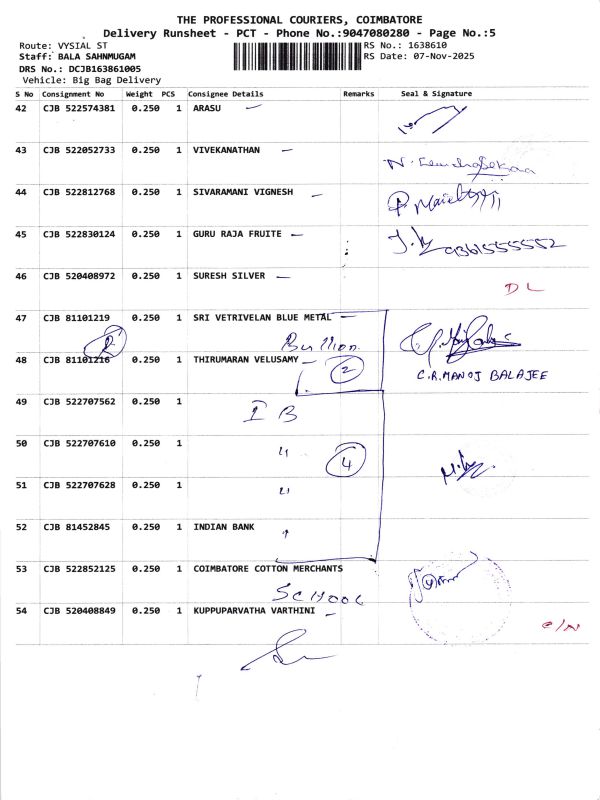 THE PROFESSIONAL COURIERS, COIMBATORE
Delivery Runsheet - PCT - Phone No.:9047080280 - Page No.:5
Route: VYSIAL ST RS No.: 1638610
Staff: BALA SAHNMUGAM RS Date: 07-Nov-2025
DRS No.: DCJB163861005
Vehicle: Big Bag Delivery
S No Consignment No Weight PCS Consignee Details Remarks Seal & Signature
42 CJB 522574381 0.250 1 ARASU
43 CJB 522052733 0.250 1 VIVEKANATHAN
44 CJB 522812768 0.250 1 SIVARAMANI VIGNESH
45 CJB 522830124 0.250 1 GURU RAJA FRUITE 9361555552
46 CJB 520408972 0.250 1 SURESH SILVER
DL
47 CJB 81101219 0.250 1 SRI VETRIVELAN BLUE METAL
R Bullion
48 CJB 81101216 0.250 1 THIRUMARAN VELUSAMY 2
C.R.MANOJ BALAJEE
49 CJB 522707562 0.250 1
I B
50 CJB 522707610 0.250 1
4
51 CJB 522707628 0.250 1
52 CJB 81452845 0.250 1 INDIAN BANK
53 CJB 522852125 0.250 1 COIMBATORE COTTON MERCHANTS
SCHOOL
54 CJB 520408849 0.250 1 KUPPUPARVATHA VARTHINI